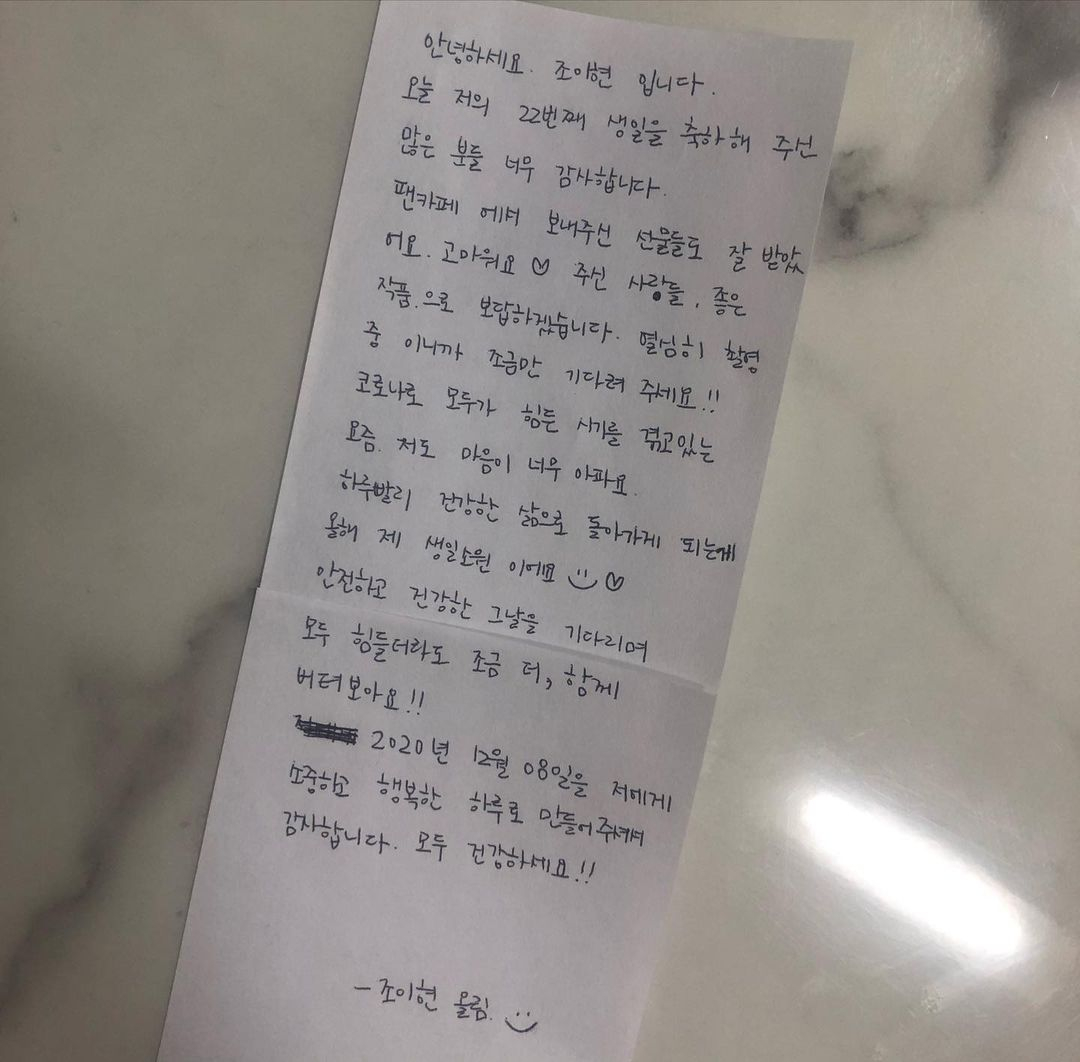 안녕하세요. 조이현 입니다.
오늘 저의 22번째 생일을 축하해 주신
많은 분들 너무 감사합니다.
팬카페 에서 보내주신 선물들도 잘 받았
어요. 고마워요 ♡ 주신 사랑들, 좋은
작품.으로 보답하겠습니다. 열심히 촬영
중 이니까 조금만 기다려 주세요!!
코로나로 모두가 힘든 시기를 겪고있는
요즘. 저도 마음이 너무 아파요.
하루빨리 건강한 삶으로 돌아가게 되는게
올해 제 생일소원 이에요 ♡
안전하고 건강한 그날을 기다리며
모두 힘들더라도 조금 더, 함께
버텨보아요!!
2020년 12월 08일을 저에게
소중하고 행복한 하루로 만들어주셔서
감사합니다. 모두 건강하세요!!
- 조이현 올림.